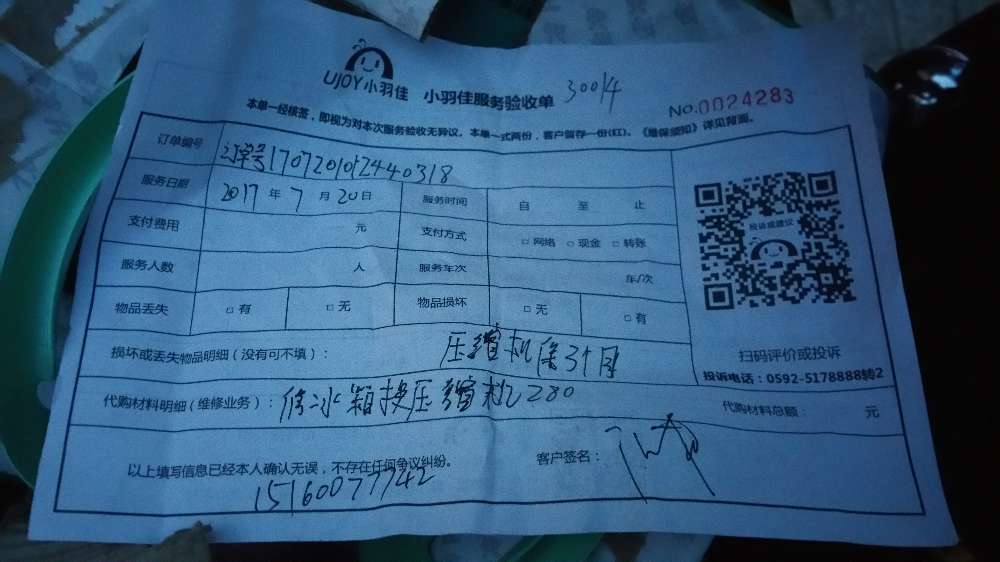 UJOY小羽佳 小羽佳服务验收单 300 No.0024283
本单一经核签，即视为对本次服务验收无异议。本单一式两份，客户留存一份(红)。《维保须知》详见背面。
订单编号 订单号17072010124440318
服务日期 2017 年 7 月 20 日 服务时间 自 至 止
支付费用 元 支付方式 □ 网络 □ 现金 □ 转账
服务人数 人 服务车次 车/次
物品丢失 □ 有 □ 无 物品损坏 □ 无 □ 有
投诉或建议
扫码评价或投诉
投诉电话：0592-5178888转2
损坏或丢失物品明细（没有可不填）： 压缩机保3个月
代购材料明细（维修业务）： 修冰箱换压缩机280 代购材料总额： 元
以上填写信息已经本人确认无误，不存在任何争议纠纷。 客户签名：
15160077742